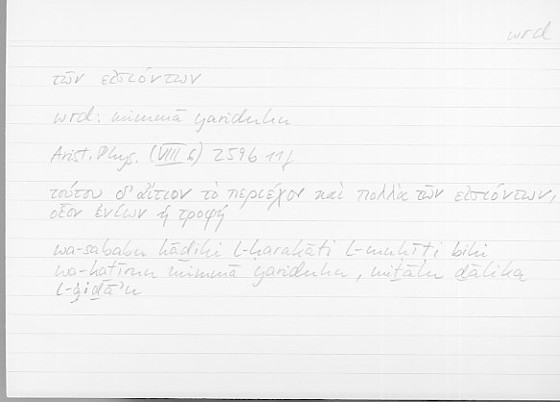 wrd
τῶν εἰσιόντων
wrd: mimmā yariduhu
Arist. Phys. (VIII 6) 259b 11f
τούτου δ' αἴτιον τὸ περιέχον καὶ πολλὰ τῶν εἰσιόντων,
οἷον ἐνίων ἡ τροφή
wa-sababu hādihi l-harakāti l-muhīti bihi
wa-katīrun mimmā yariduhu, mitālu ḏālika
l-ġidā'u